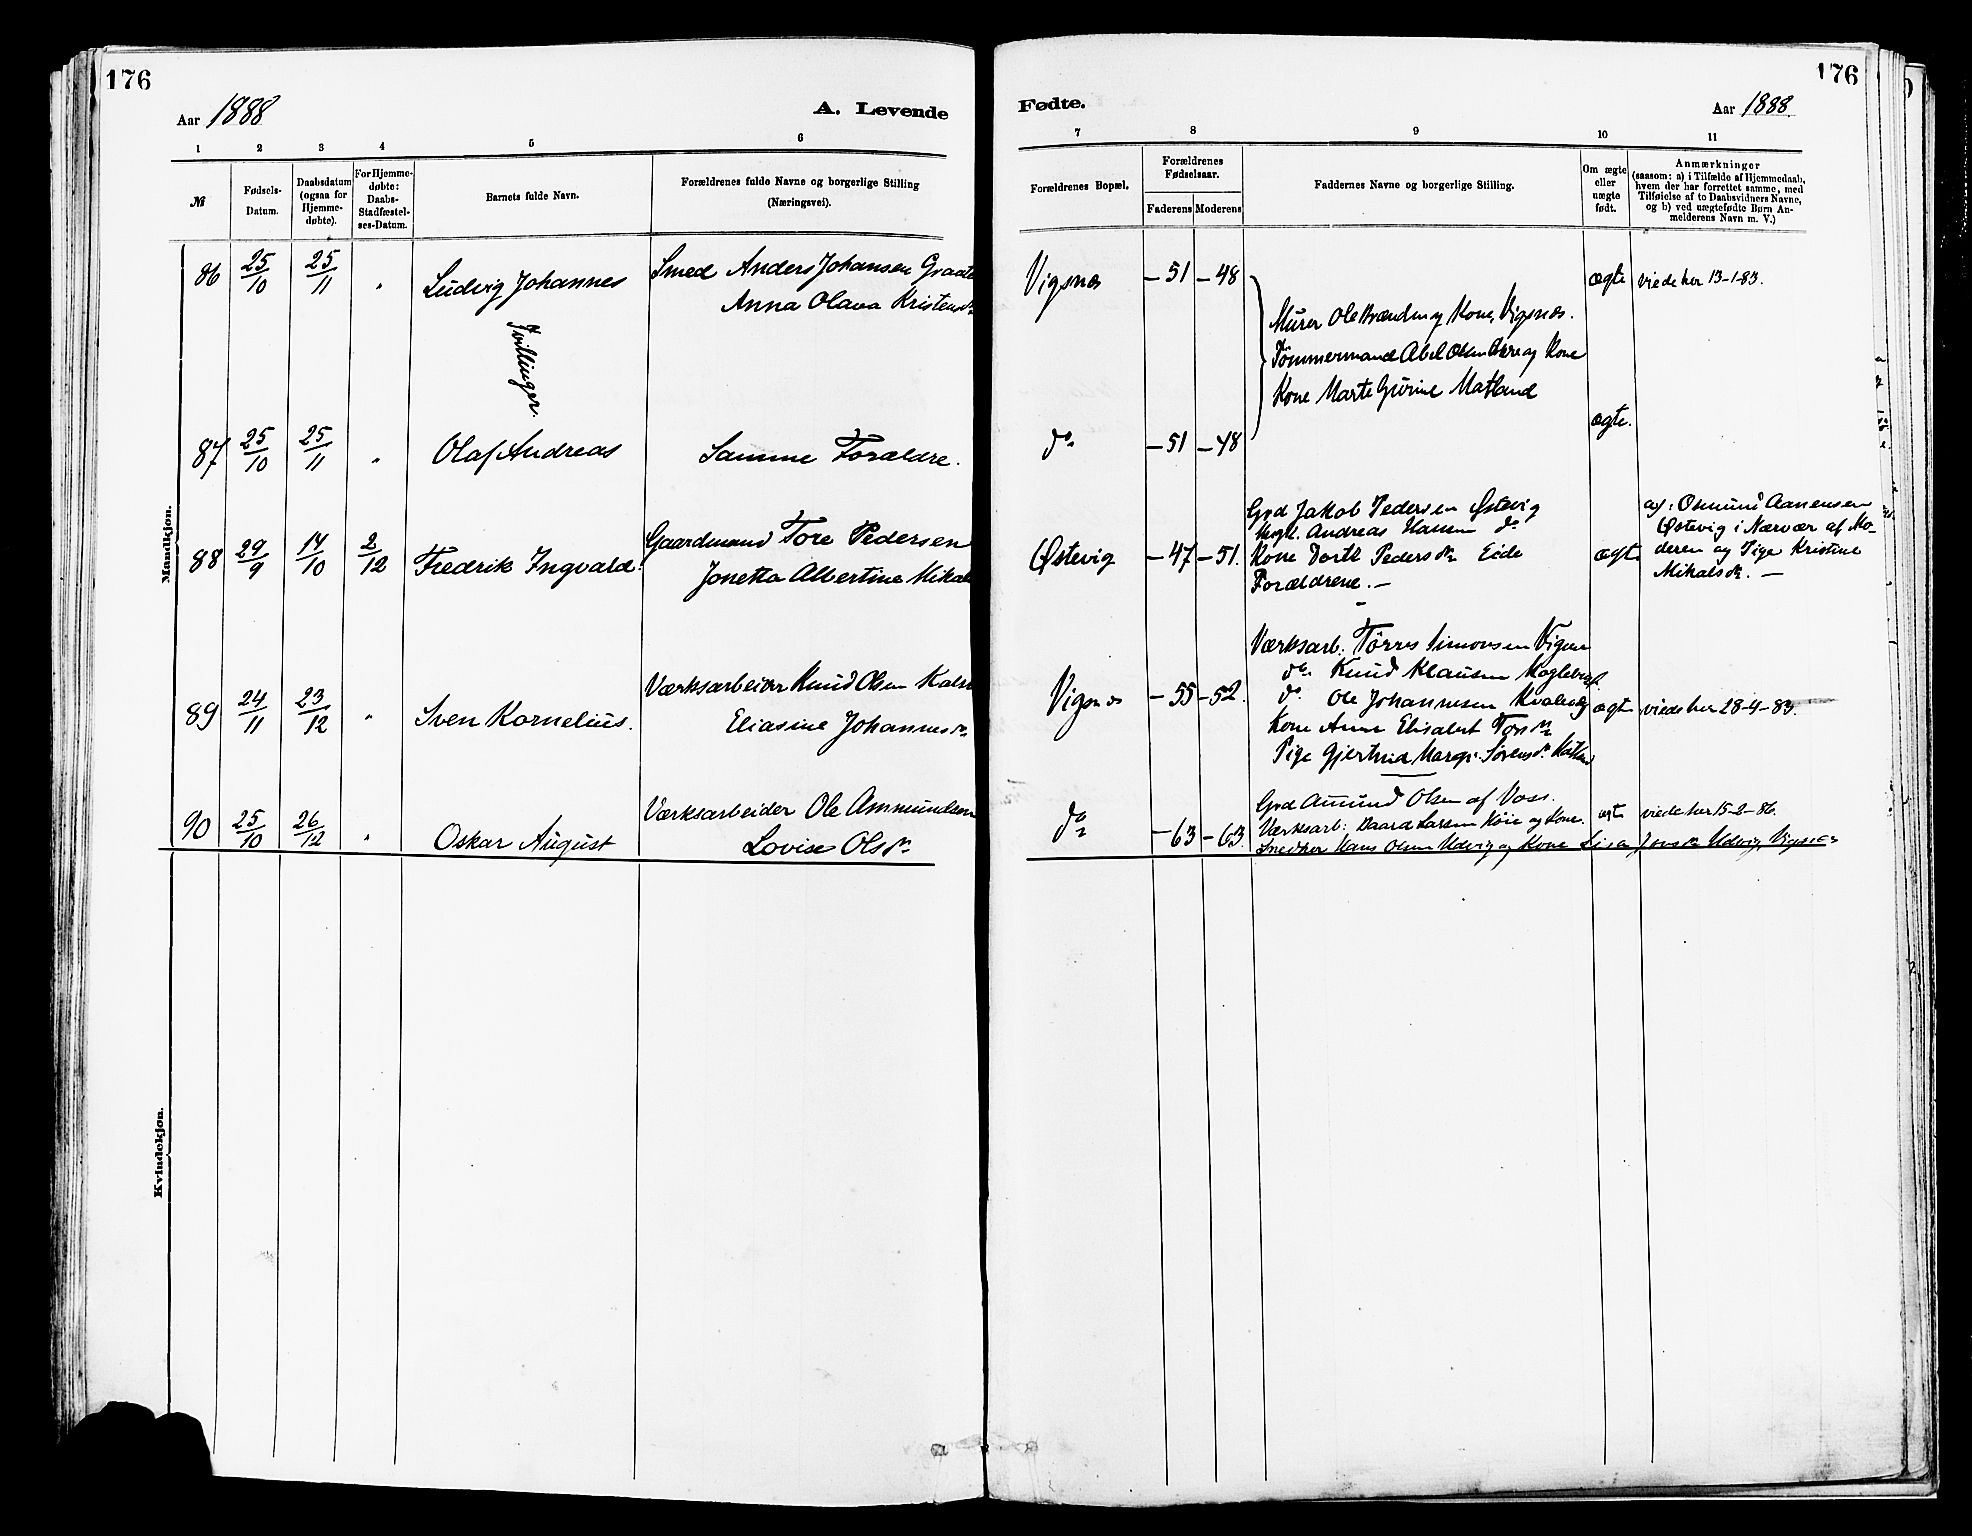 176
Aar 1888
A. Levende
1 2 3 4 5 6
№
Fødsels-Datum.
Daabsdatum (ogsaa for Hjemme-døbte).
For Hjemme-døbte: Daabs-Stadfæstel-ses-Datum.
Barnets fulde Navn.
Forældrenes fulde Navne og borgerlige Stilling
(Næringsvei).
Mandkjøn.
86 25/10 25/11 " Ludvig Johannes Smed Anders Johansen
Anna Olava Kristensdr
Tvillinger.
87 25/10 25/11 " Olaf Andreas Samme Forældre.
88 29/9 14/10 2/12 Fredrik Ingvald. Gaardmand Tore Pedersen
Jonetta Albertine
89 24/11 23/12 " Sven Kornelius. Værksarbeider Knud Olsen
Eliasine Johannesdr
90 25/10 26/12 " Oskar August Værksarbeider Ole Ammundsen
Lovise Olsdr
Kvindekjøn.
176
Fødte.
Aar 1888.
7 8 9 10 11
Forældrenes Bopæl.
Forældrenes Fødselsaar.
Faderens Moderens
Faddernes Navne og borgerlige Stilling.
Om ægte eller uægte født.
Anmærkninger
(saasom: a) i Tilfælde af Hjemmedaab,
hvem der har forrettet samme, med
Tilføielse af to Daabsvidners Navne,
og b) ved uægtefødte Børn An-
melderens Navn m. V.)
Vigsnes – 51 – 48 ægte viede her 13-1-83.
Murer Ole Brænden og Kone, Vigsnæs.
Tømmermand Abel Olsen og Kone
Kone Marte Gurine Matland
do – 51 – 48 ægte.
Gpd Jakob Pedersen Østevig
Andreas Hansen do
Østevig – 47 – 51. Kone Dorte Pedersdr Eide ægte
Forældrene. –
af: Osmund Aanensen
Østevig i Nærvær af Mo-
deren og Pige Kristine
Mikalsdr. –
Værksarb: Tørres Simonsen
do Knud Klausen
Vigsnes – 55 – 52. do Ole Johannesen ægte viede her 28-4-83.
Kone Anne Elisabet
Pige Gjertrud Marg: Sørensdr
Gpd Amund Olsen af Voss.
do – 63 – 63. Værksarb: Baard Larsen og Kone. ægte viede her 15-2-86.
Hans Olsen Udvig og Kone Lisa Udvig, Vigsnes